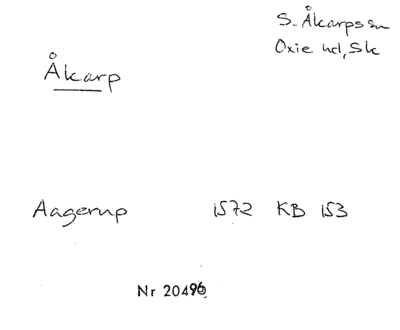 S. Åkarps sn
Oxie hd, Sk
Åkarp
Aagerup 1572 KB 153
Nr 20496